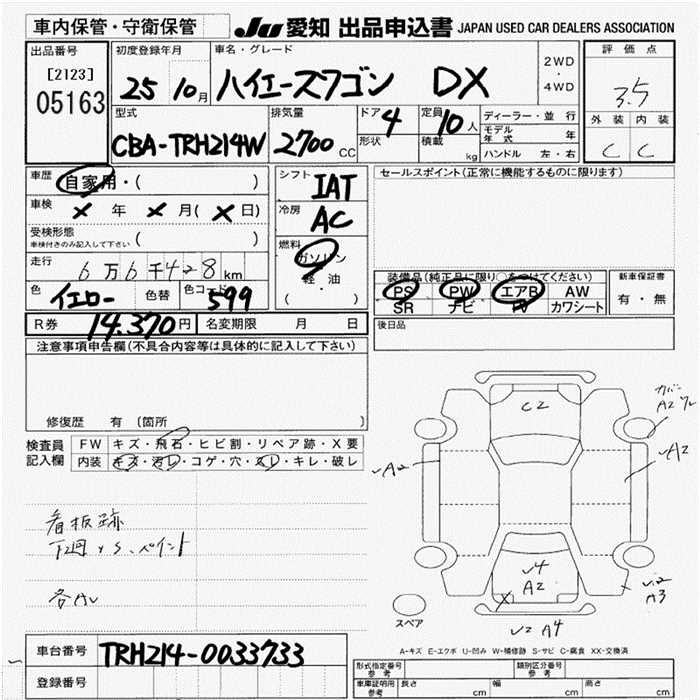 車内保管・守衛保管
JU 愛知 出品申込書 JAPAN USED CAR DEALERS ASSOCIATION
出品番号
[2123]
05163
初度登録年月
25 10月
車名・グレード
ハイエースワゴン DX
2WD
・
4WD
評価点
3.5
外装 内装
C C
型式
CBA-TRH214W
排気量
2700 CC
ドア 4
形状
定員 10人
積載 kg
ディーラー・並行
モデル年式 年
ハンドル 左・右
車歴 自家用・( )
車検 X 年 X 月( X 日)
受検形態
車検付きのみ記入して下さい ( )
走行 6万6千428km
色 イエロー 色替 色コード 599
シフト IAT
冷房 AC
燃料
ガソリン
軽・油
( )
セールスポイント(正常に機能するものに限ります)
装備品(純正品に限り○をつけてください)
PS PW エアB AW
SR ナビ TV カワシート
新車保証書
有・無
後日品
R券 14.370円 名変期限 月 日
注意事項申告欄(不具合内容等は具体的に記入して下さい)
修復歴 有 〔箇所 〕
検査員
記入欄
FW キズ・飛石・ヒビ割・リペア跡・X要
内装 キズ・汚レ・コゲ・穴・スレ・キレ・破レ
看板跡
下廻り S.ペイント
C2
カバー
A2
A2
A2
A2
A3
A2
X
A4
スペア
A-キズ E-エクボ U-凹み W-補修跡 S-サビ C-腐食 XX-交換済
車台番号 TRH214-0033733
登録番号
形式指定番号
参考
類別区分番号
参考
車庫証明用
参考
長さ cm 幅 cm 高さ cm